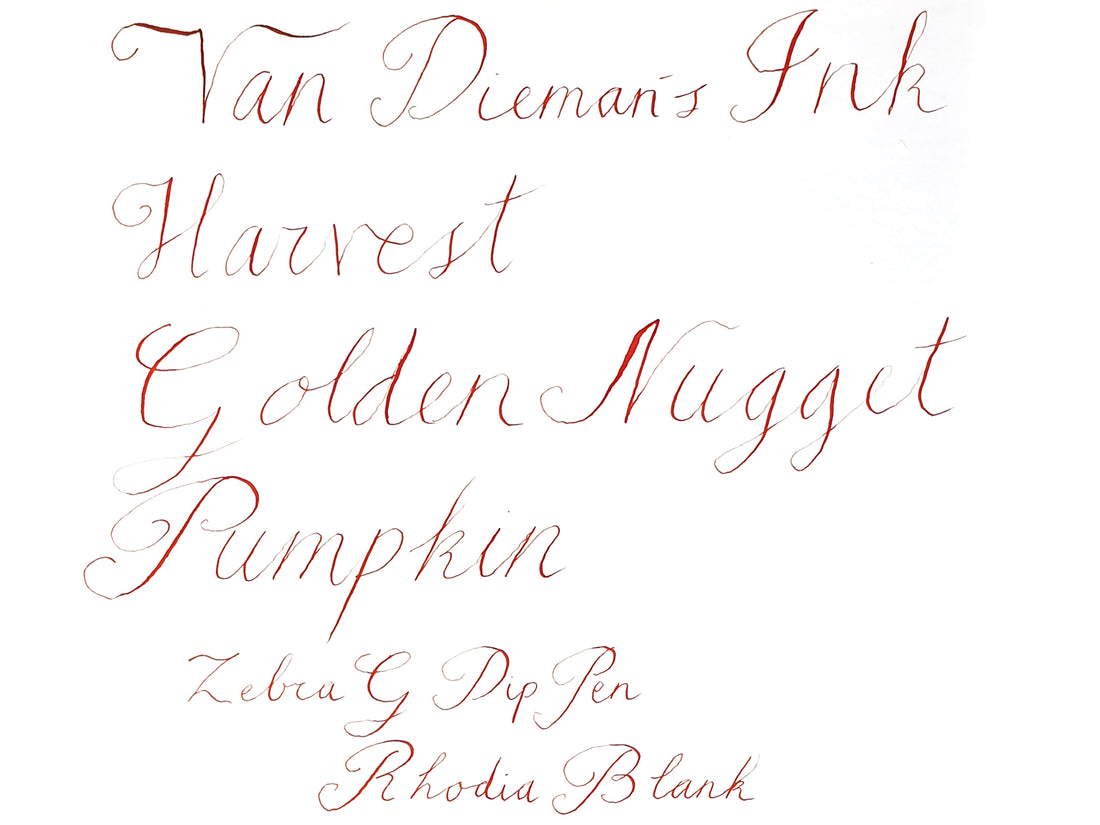 Van Dieman's Ink
Harvest
Golden Nugget
Pumpkin
Zebra G Dip Pen
Rhodia Blank